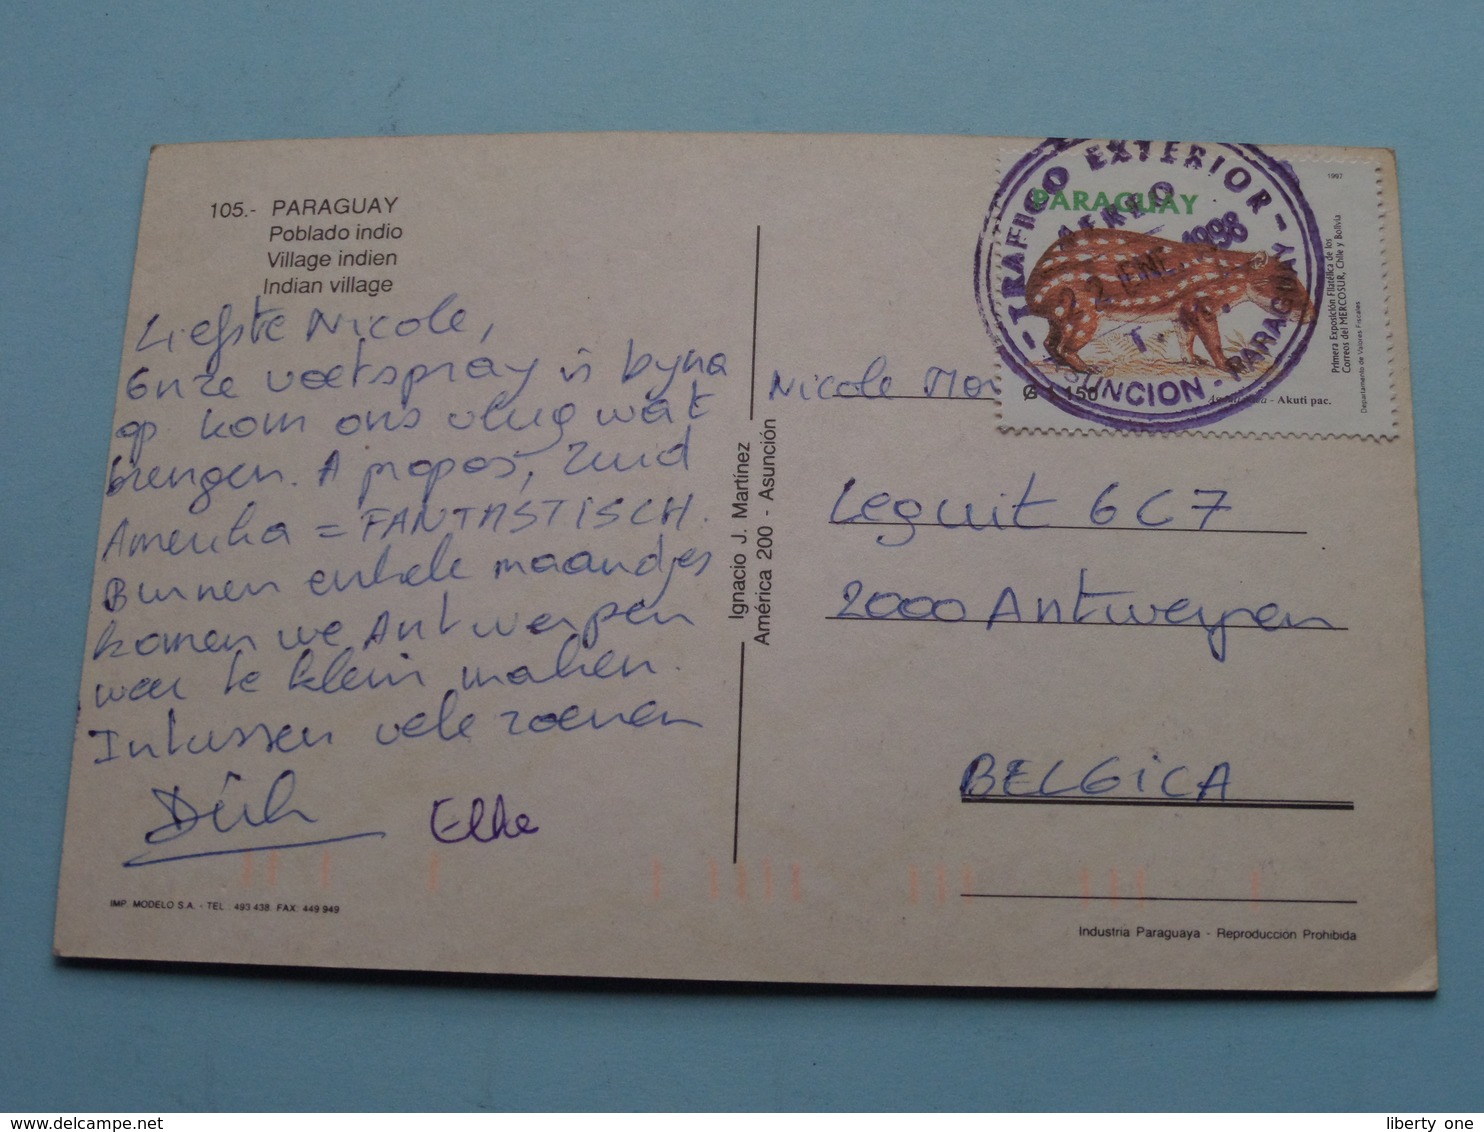 105.- PARAGUAY
Poblado indio
Village indien
Indian village
Liefste Nicole,
Onze voetspray is byna
op kom ons vlug wat
brengen. A propos, Zuid
Amerika = FANTASTISCH.
Binnen enkele maandjes
komen we Antwerpen
weer te klein maken.
Intussen vele zoenen
Dirk
Elke
IMP. MODELO S.A. - TEL.: 493 438. FAX: 449 949
Ignacio J. Martínez
América 200 - Asunción
TRAFICO EXTERIOR -
AEREO
22 ENE. 1998
ASUNCION - PARAGUAY
PARAGUAY
1997
Primera Exposición Filatélica de los
Correos del MERCOSUR, Chile y Bolivia
Departamento de Valores Fiscales
G 1.150
- Akuti pac.
Nicole
Leguit 6C7
2000 Antwerpen
BELGICA
Industria Paraguaya - Reproducción Prohibida
liberty one
Delcampe.net